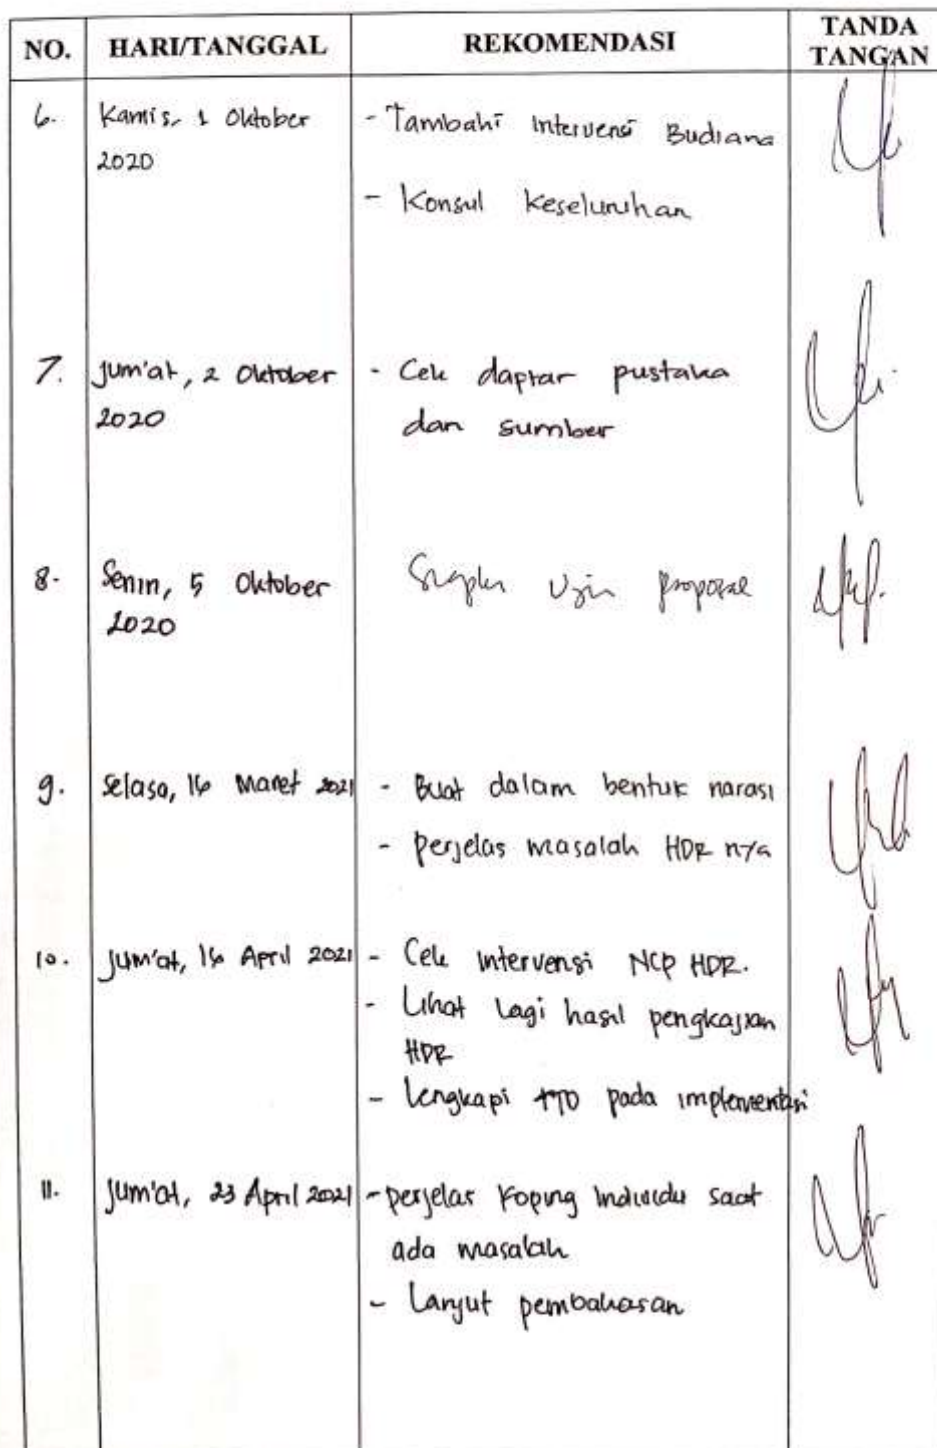 NO. HARI/TANGGAL REKOMENDASI TANDA TANGAN
6. Kamis, 1 Oktober 2020
- Tambahi intervensi Budiana
- Konsul keseluruhan
7. Jum'at, 2 Oktober 2020
- Cek daptar pustaka
dan sumber
8. Senin, 5 Oktober 2020
Siapkn Ujin proposal
9. Selasa, 16 Maret 2021
- Buat dalam bentuk narasi
- perjelas masalah HDR nya
10. Jum'at, 16 April 2021
- Cek intervensi NCP HDR.
- Lihat lagi hasil pengkajian
HDR
- Lengkapi TTD pada implementasi
11. Jum'at, 23 April 2021
- perjelas koping individu saat
ada masalah
- Lanjut pembahasan